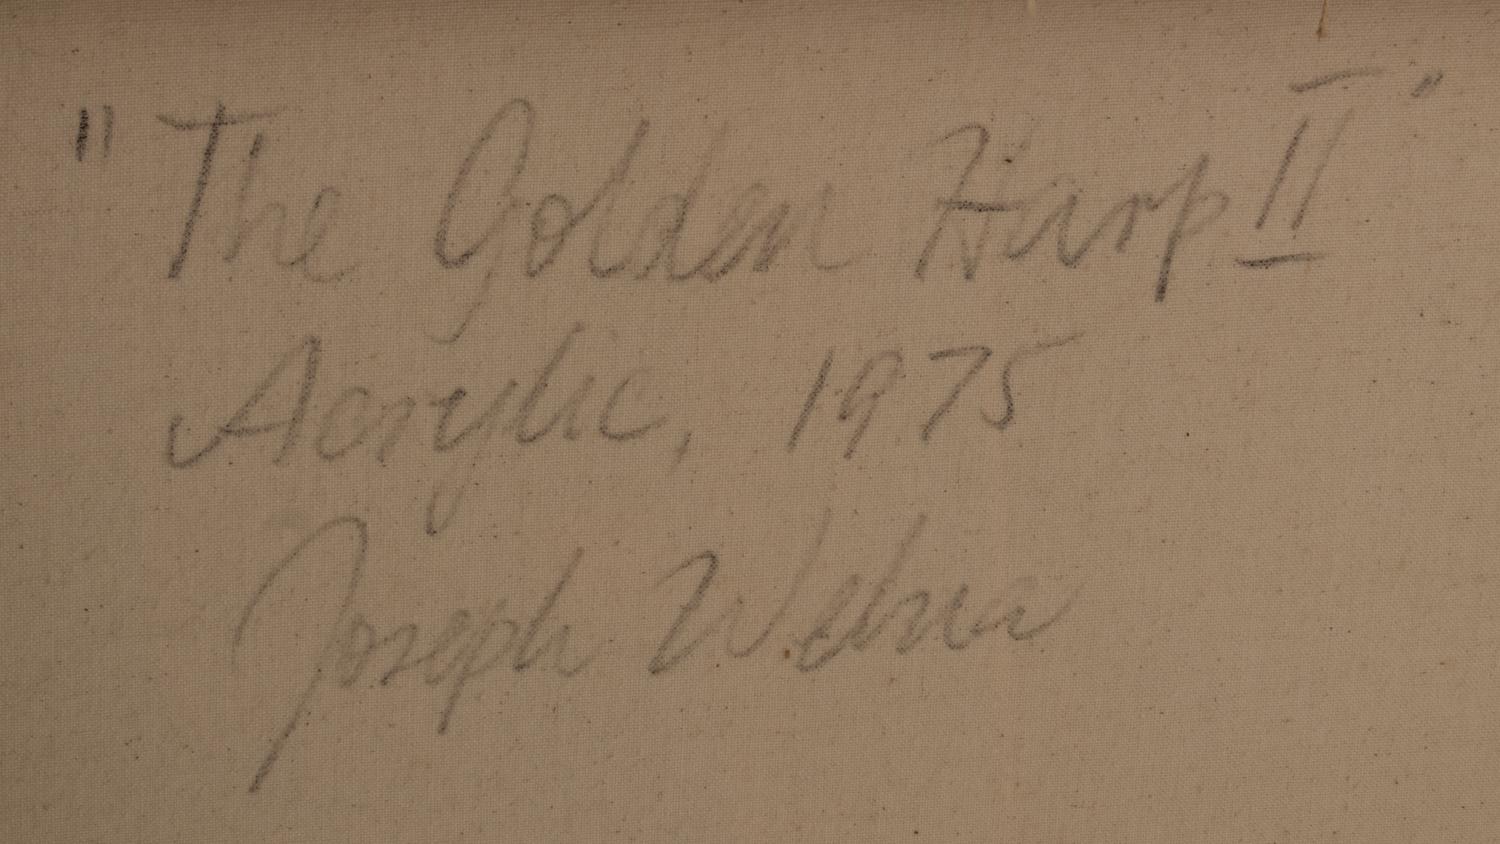 "The Golden Harp II"
Acrylic, 1975
Joseph